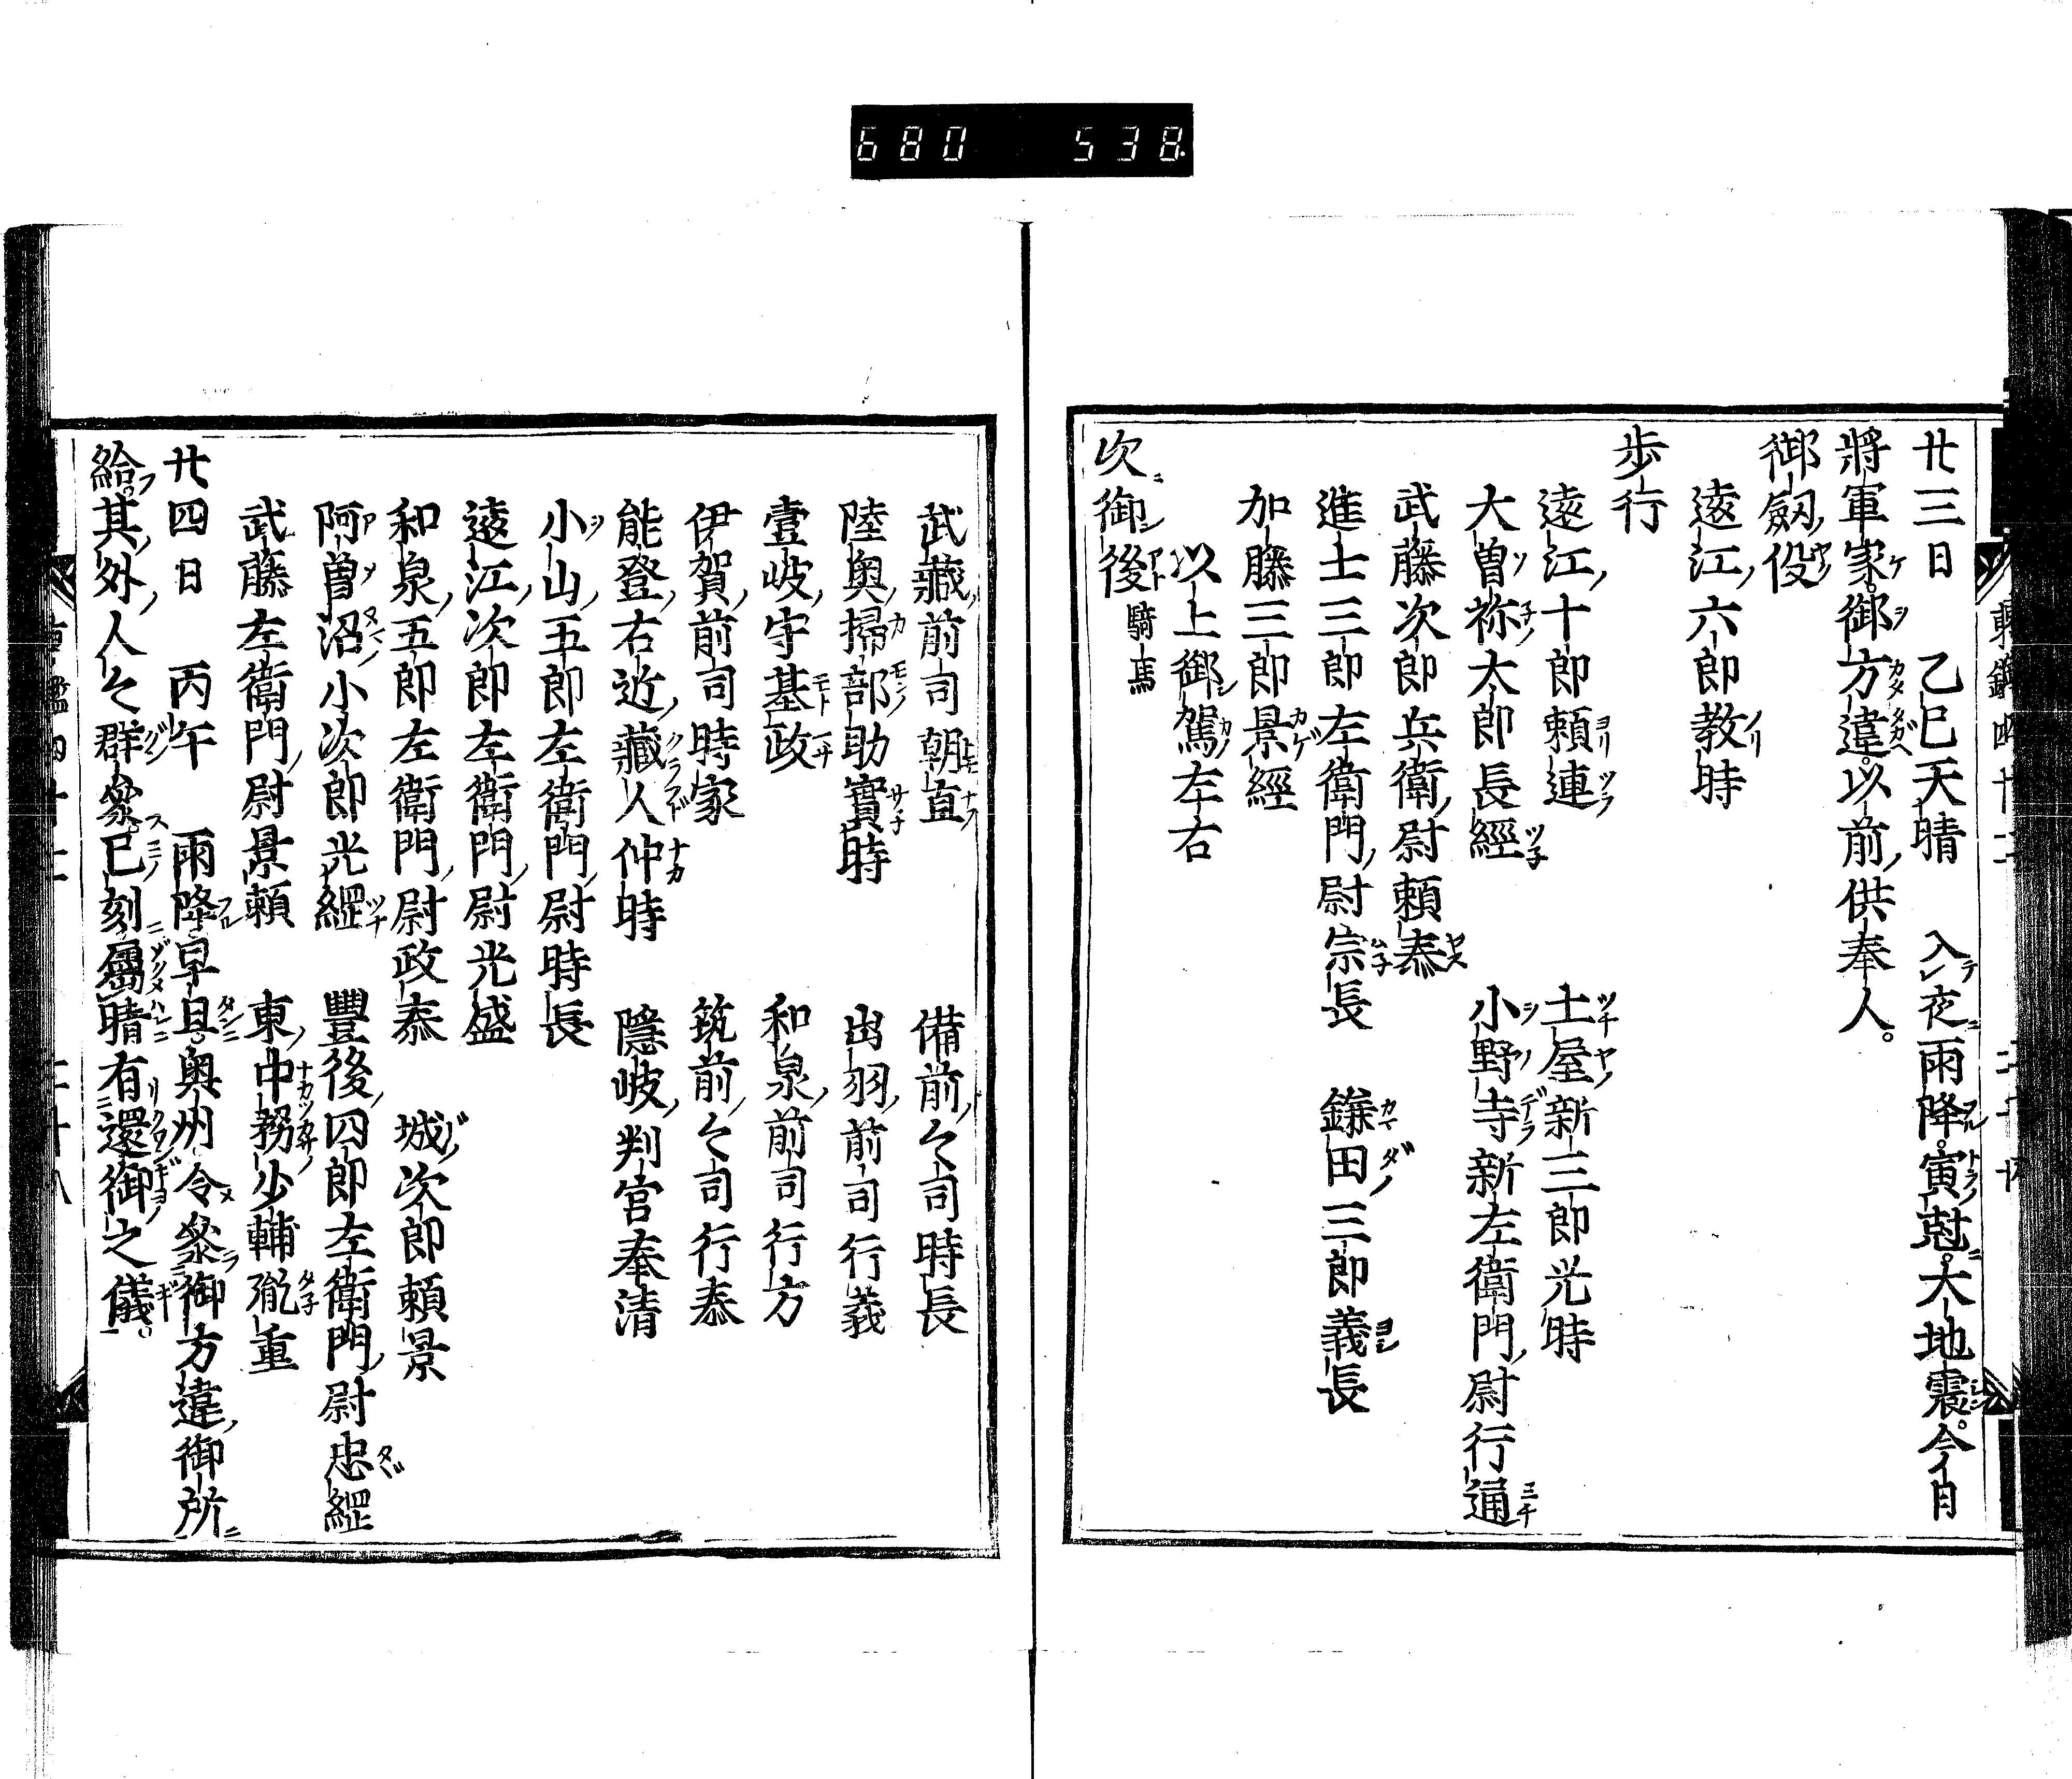 680 538
廿三日 乙巳天晴 入夜雨降。寅尅。大地震。今日
將軍家。御方違。以前供奉人。
御劔役
遠江六郎教時
歩行
遠江十郎頼連 土屋新三郎光時
大曽祢太郎長經 小野寺新左衛門尉行通
武藤次郎兵衛尉頼泰
進士三郎左衛門尉宗長 鎌田三郎義長
加藤三郎景經
以上御駕左右
次御後騎馬
武藏前司朝直 備前々司時長
陸奥掃部助實時 出羽前司行義
壹岐守基政 和泉前司行方
伊賀前司時家 筑前々司行泰
能登右近藏人仲時 隱岐判官奉清
小山五郎左衛門尉時長
遠江次郎左衛門尉光盛
和泉五郎左衛門尉政泰 城次郎頼景
阿曽沼小次郎光經 豐後四郎左衛門尉忠經
武藤左衛門尉景頼 東中務少輔胤重
廿四日 丙午 雨降。早旦。奥州令參御方違御所
給。其外人々群參。巳刻屬晴有還御之儀。